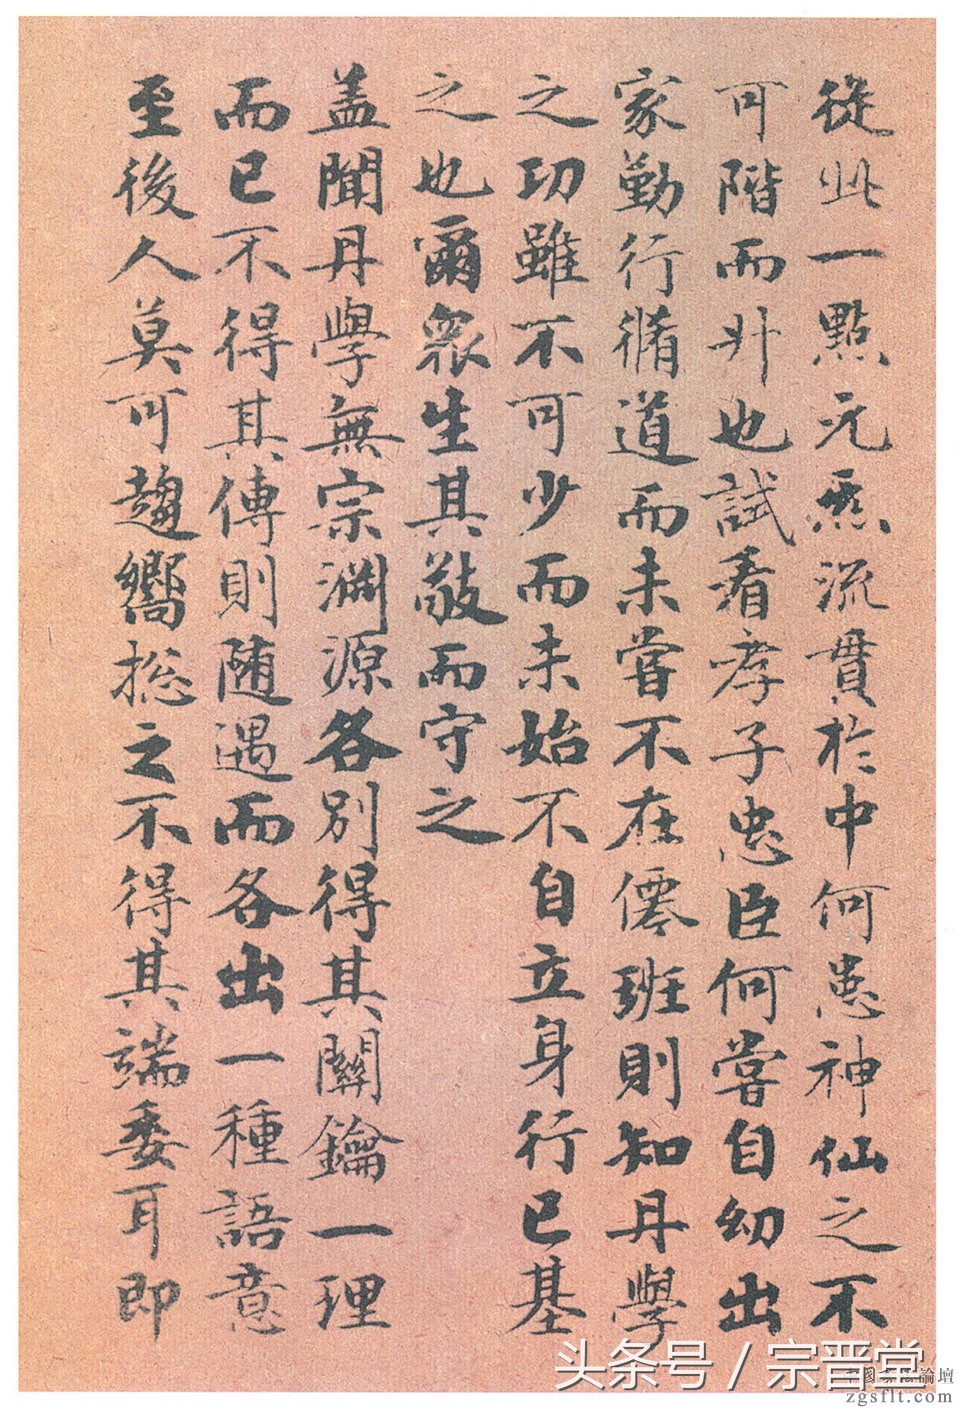 從此一點元炁流貫於中何患神仙之不
可階而升也試看孝子忠臣何嘗自幼出
家勤行脩道而未嘗不在僊班則知丹學
之功雖不可少而未始不自立身行己基
之也爾衆生其敬而守之
盖聞丹學無宗渊源各別得其關鑰一理
而已不得其傳則随遇而各出一種語意
至後人莫可趨嚮捴之不得其端委耳即
头条号 / 宗晋堂
論壇
zgsflt.com